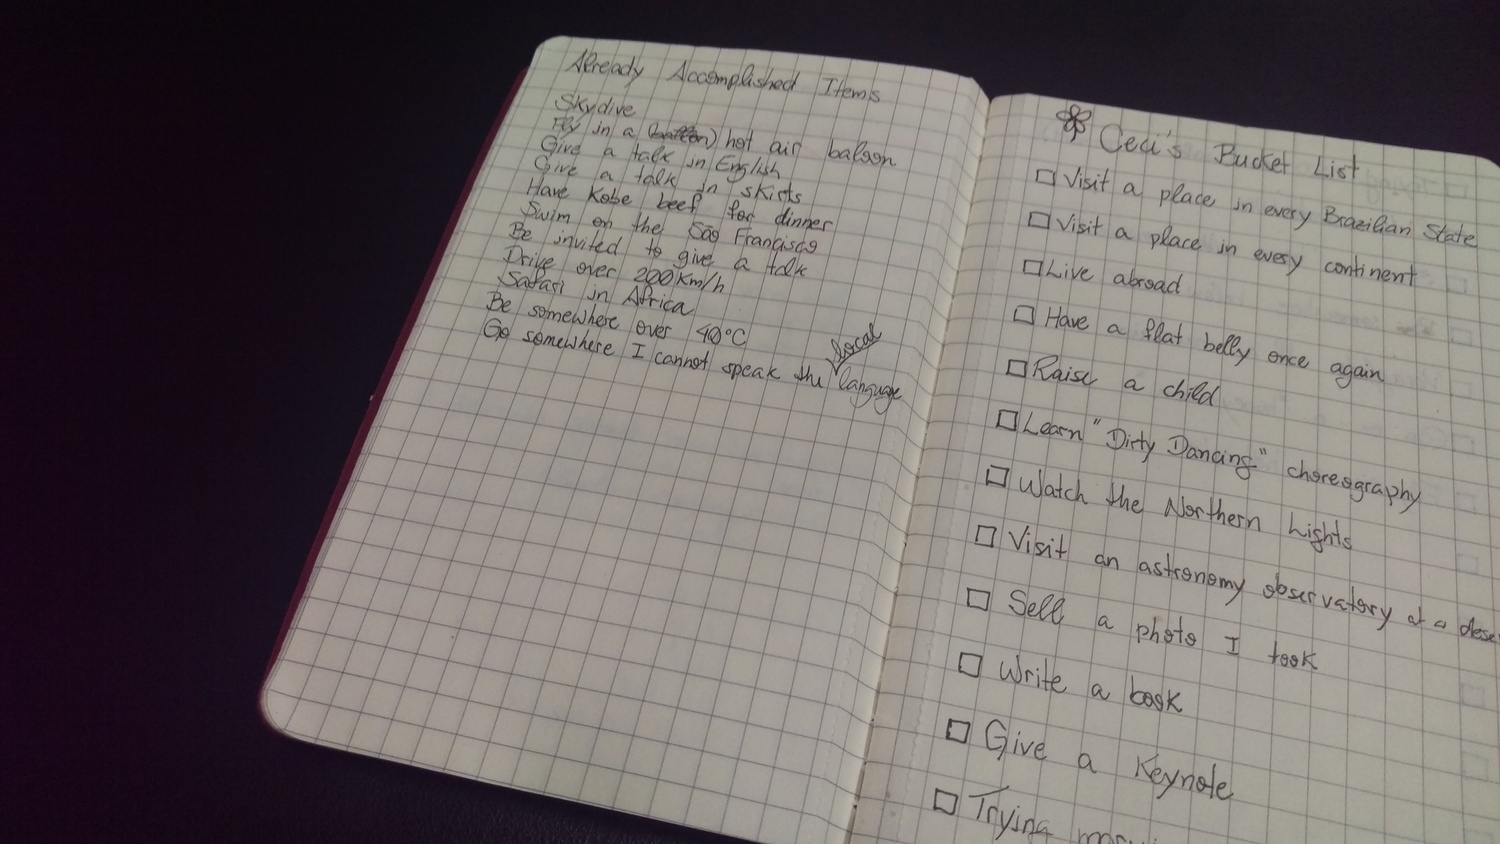 Already Accomplished Items
Skydive
Fly in a (ballon) hot air baloon
Give a talk in English
Give a talk in skirts
Have Kobe beef for dinner
Swim on the São Francisco
Be invited to give a talk
Drive over 200Km/h
Safari in Africa
Be somewhere over 40°C
Go somewhere I cannot speak the local language
Ceci's Bucket List
Visit a place in every Brazilian State
Visit a place in every continent
Live abroad
Have a flat belly once again
Raise a child
Learn "Dirty Dancing" choreography
Watch the Northern Lights
Visit an astronomy observatory at a
Sell a photo I took
Write a book
Give a Keynote
Trying